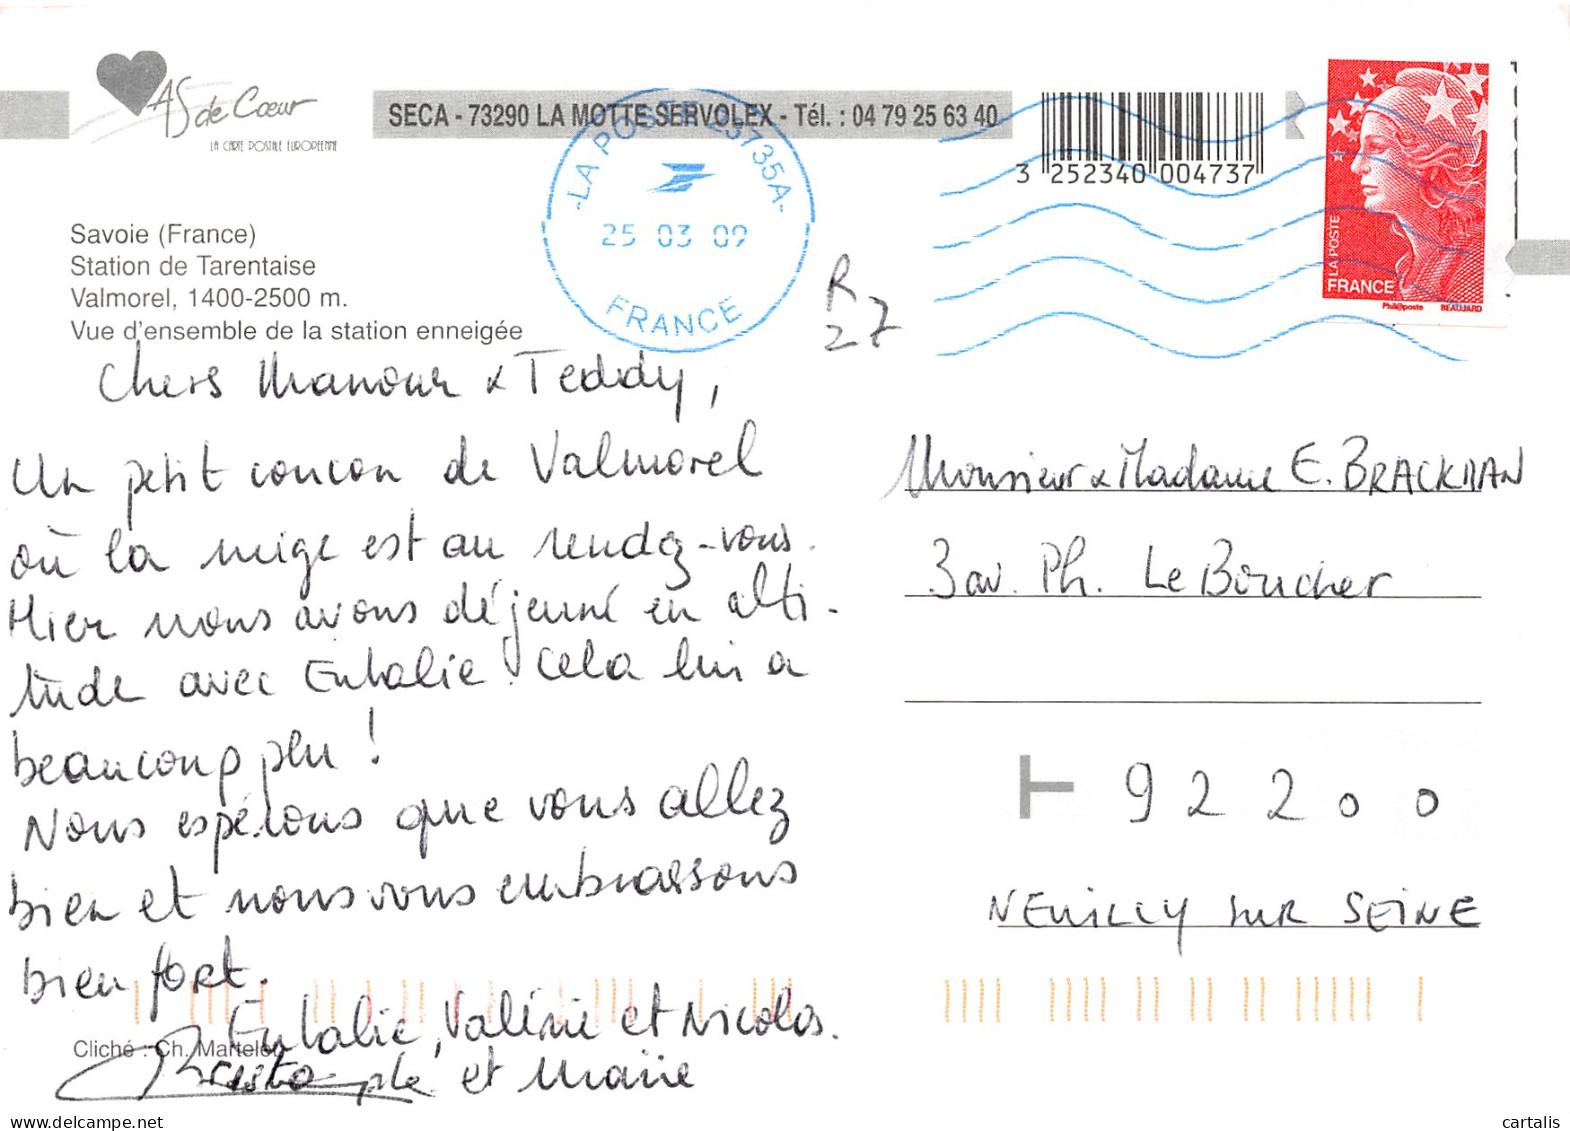 AS de Cœur
LA CARTE POSTALE EUROPEENNE
SECA - 73290 LA MOTTE SERVOLEX - Tél. : 04 79 25 63 40
3 252340 004737
LA POSTE 23735A
25 03 09
FRANCE
LA POSTE
FRANCE
Phil@poste BEAUJARD
Savoie (France)
Station de Tarentaise
Valmorel, 1400-2500 m.
Vue d'ensemble de la station enneigée
R
27
Chers Manour & Teddy,
Un petit coucou de Valmorel
où la neige est au rendez-vous.
Hier nous avons déjeuné en alti-
tude avec Eulalie. Cela lui a
beaucoup plu !
Nous espérons que vous allez
bien et nous vous embrassons
bien fort.
Eulalie, Valérie et Nicolas.
Christophe et Marie
Cliché : Ch. Martelet
Monsieur & Madame E. BRACKMAN
3 av. Ph. Le Boucher
92200
NEUILLY SUR SEINE
cartalis